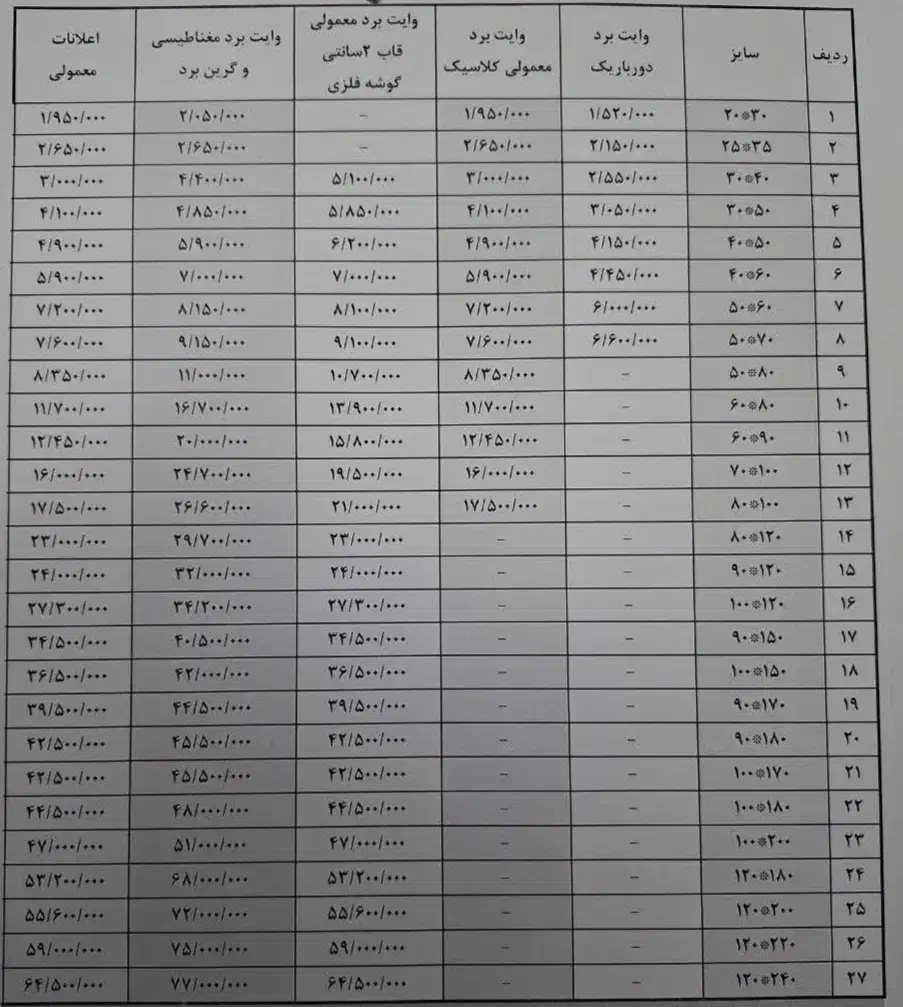 ردیف سایز وایت برد دورباریک وایت برد معمولی کلاسیک وایت برد معمولی قاب ۲سانتی گوشه فلزی وایت برد مغناطیسی و گرین برد اعلانات معمولی
۱ ۲۰*۳۰ ۱/۵۲۰/۰۰۰ ۱/۹۵۰/۰۰۰ – ۲/۰۵۰/۰۰۰ ۱/۹۵۰/۰۰۰
۲ ۲۵*۳۵ ۲/۱۵۰/۰۰۰ ۲/۶۵۰/۰۰۰ – ۲/۶۵۰/۰۰۰ ۲/۶۵۰/۰۰۰
۳ ۳۰*۴۰ ۲/۵۵۰/۰۰۰ ۳/۰۰۰/۰۰۰ ۵/۱۰۰/۰۰۰ ۴/۴۰۰/۰۰۰ ۳/۰۰۰/۰۰۰
۴ ۳۰*۵۰ ۳/۰۵۰/۰۰۰ ۴/۱۰۰/۰۰۰ ۵/۸۵۰/۰۰۰ ۴/۸۵۰/۰۰۰ ۴/۱۰۰/۰۰۰
۵ ۴۰*۵۰ ۴/۱۵۰/۰۰۰ ۴/۹۰۰/۰۰۰ ۶/۲۰۰/۰۰۰ ۵/۹۰۰/۰۰۰ ۴/۹۰۰/۰۰۰
۶ ۴۰*۶۰ ۴/۴۵۰/۰۰۰ ۵/۹۰۰/۰۰۰ ۷/۰۰۰/۰۰۰ ۷/۰۰۰/۰۰۰ ۵/۹۰۰/۰۰۰
۷ ۵۰*۶۰ ۶/۰۰۰/۰۰۰ ۷/۲۰۰/۰۰۰ ۸/۱۰۰/۰۰۰ ۸/۱۵۰/۰۰۰ ۷/۲۰۰/۰۰۰
۸ ۵۰*۷۰ ۶/۶۰۰/۰۰۰ ۷/۶۰۰/۰۰۰ ۹/۱۰۰/۰۰۰ ۹/۱۵۰/۰۰۰ ۷/۶۰۰/۰۰۰
۹ ۵۰*۸۰ – ۸/۳۵۰/۰۰۰ ۱۰/۷۰۰/۰۰۰ ۱۱/۰۰۰/۰۰۰ ۸/۳۵۰/۰۰۰
۱۰ ۶۰*۸۰ – ۱۱/۷۰۰/۰۰۰ ۱۳/۹۰۰/۰۰۰ ۱۶/۷۰۰/۰۰۰ ۱۱/۷۰۰/۰۰۰
۱۱ ۶۰*۹۰ – ۱۲/۴۵۰/۰۰۰ ۱۵/۸۰۰/۰۰۰ ۲۰/۰۰۰/۰۰۰ ۱۲/۴۵۰/۰۰۰
۱۲ ۷۰*۱۰۰ – ۱۶/۰۰۰/۰۰۰ ۱۹/۵۰۰/۰۰۰ ۲۴/۷۰۰/۰۰۰ ۱۶/۰۰۰/۰۰۰
۱۳ ۸۰*۱۰۰ – ۱۷/۵۰۰/۰۰۰ ۲۱/۰۰۰/۰۰۰ ۲۶/۶۰۰/۰۰۰ ۱۷/۵۰۰/۰۰۰
۱۴ ۸۰*۱۲۰ – – ۲۳/۰۰۰/۰۰۰ ۲۹/۷۰۰/۰۰۰ ۲۳/۰۰۰/۰۰۰
۱۵ ۹۰*۱۲۰ – – ۲۴/۰۰۰/۰۰۰ ۳۲/۰۰۰/۰۰۰ ۲۴/۰۰۰/۰۰۰
۱۶ ۱۰۰*۱۲۰ – – ۲۷/۳۰۰/۰۰۰ ۳۴/۲۰۰/۰۰۰ ۲۷/۳۰۰/۰۰۰
۱۷ ۹۰*۱۵۰ – – ۳۴/۵۰۰/۰۰۰ ۴۰/۵۰۰/۰۰۰ ۳۴/۵۰۰/۰۰۰
۱۸ ۱۰۰*۱۵۰ – – ۳۶/۵۰۰/۰۰۰ ۴۲/۰۰۰/۰۰۰ ۳۶/۵۰۰/۰۰۰
۱۹ ۹۰*۱۷۰ – – ۳۹/۵۰۰/۰۰۰ ۴۴/۵۰۰/۰۰۰ ۳۹/۵۰۰/۰۰۰
۲۰ ۹۰*۱۸۰ – – ۴۲/۵۰۰/۰۰۰ ۴۵/۵۰۰/۰۰۰ ۴۲/۵۰۰/۰۰۰
۲۱ ۱۰۰*۱۷۰ – – ۴۲/۵۰۰/۰۰۰ ۴۵/۵۰۰/۰۰۰ ۴۲/۵۰۰/۰۰۰
۲۲ ۱۰۰*۱۸۰ – – ۴۴/۵۰۰/۰۰۰ ۴۸/۰۰۰/۰۰۰ ۴۴/۵۰۰/۰۰۰
۲۳ ۱۰۰*۲۰۰ – – ۴۷/۰۰۰/۰۰۰ ۵۱/۰۰۰/۰۰۰ ۴۷/۰۰۰/۰۰۰
۲۴ ۱۲۰*۱۸۰ – – ۵۳/۲۰۰/۰۰۰ ۶۸/۰۰۰/۰۰۰ ۵۳/۲۰۰/۰۰۰
۲۵ ۱۲۰*۲۰۰ – – ۵۵/۶۰۰/۰۰۰ ۷۲/۰۰۰/۰۰۰ ۵۵/۶۰۰/۰۰۰
۲۶ ۱۲۰*۲۲۰ – – ۵۹/۰۰۰/۰۰۰ ۷۵/۰۰۰/۰۰۰ ۵۹/۰۰۰/۰۰۰
۲۷ ۱۲۰*۲۴۰ – – ۶۴/۵۰۰/۰۰۰ ۷۷/۰۰۰/۰۰۰ ۶۴/۵۰۰/۰۰۰